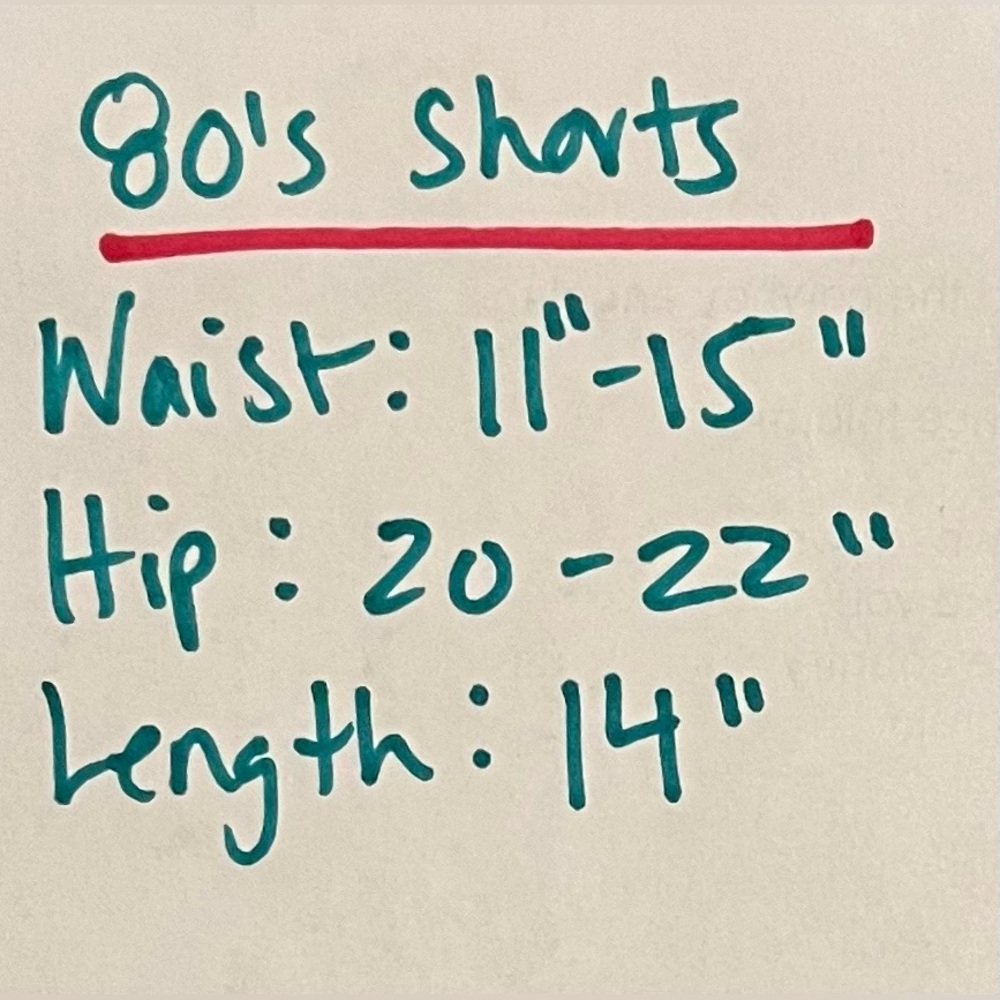 80's Shorts
Waist: 11"-15"
Hip: 20-22"
Length: 14"